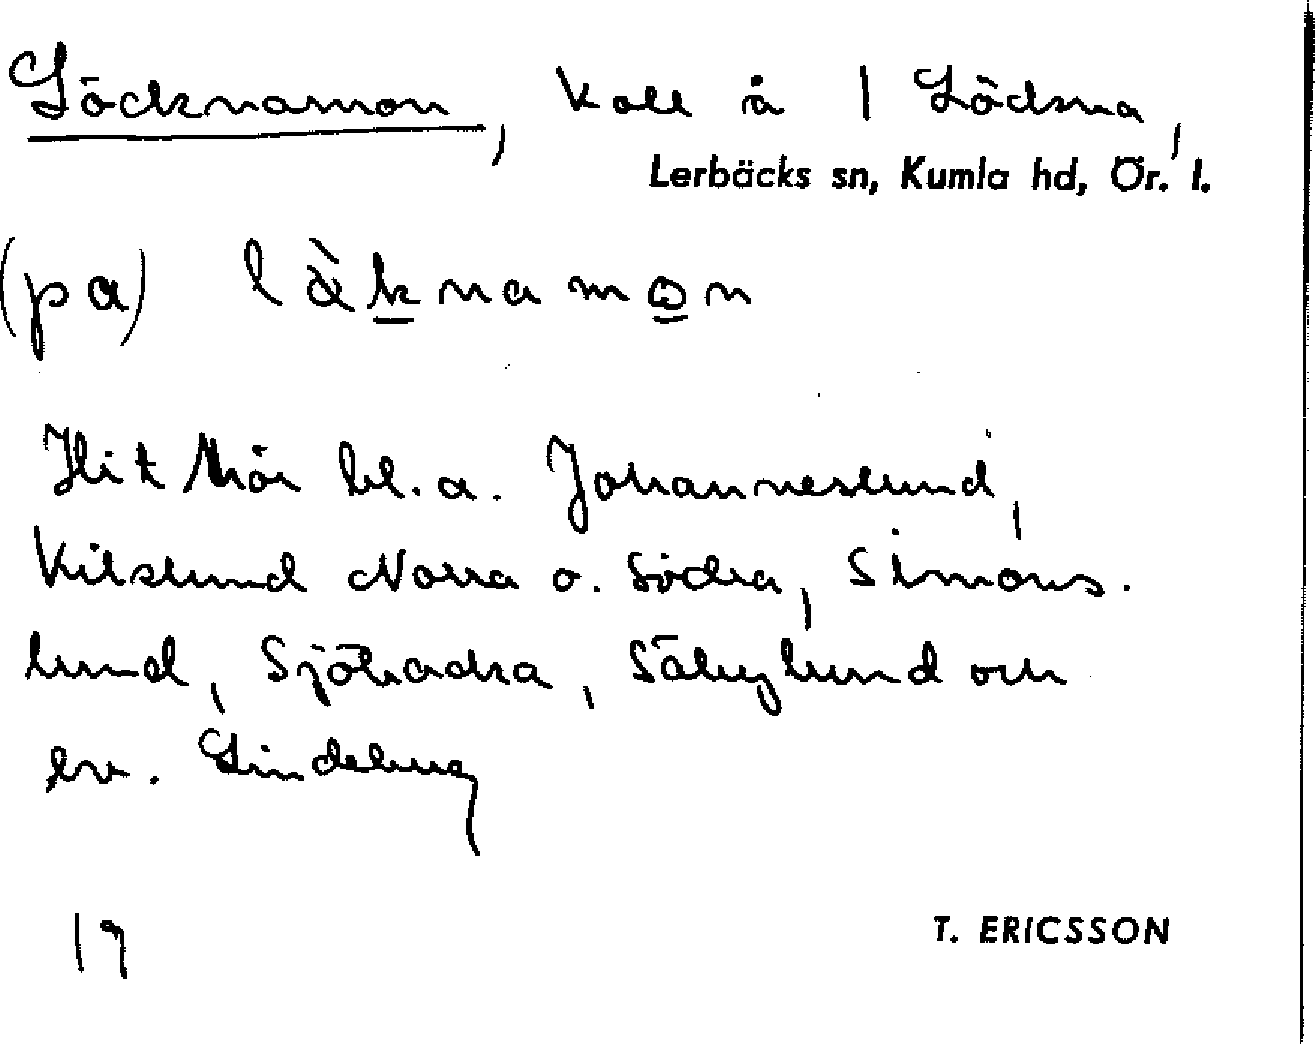 Löcknamon, koll å 1 Lödsna,
Lerbäcks sn, Kumla hd, Ör. l.
(på) lą̀knamon
Hit hör bl.a. Johanneslund,
Kilslund Norra o. Södra, Simons-
lund, Sjöhadra, Säbylund och
ev. Lindeberg
19
T. ERICSSON